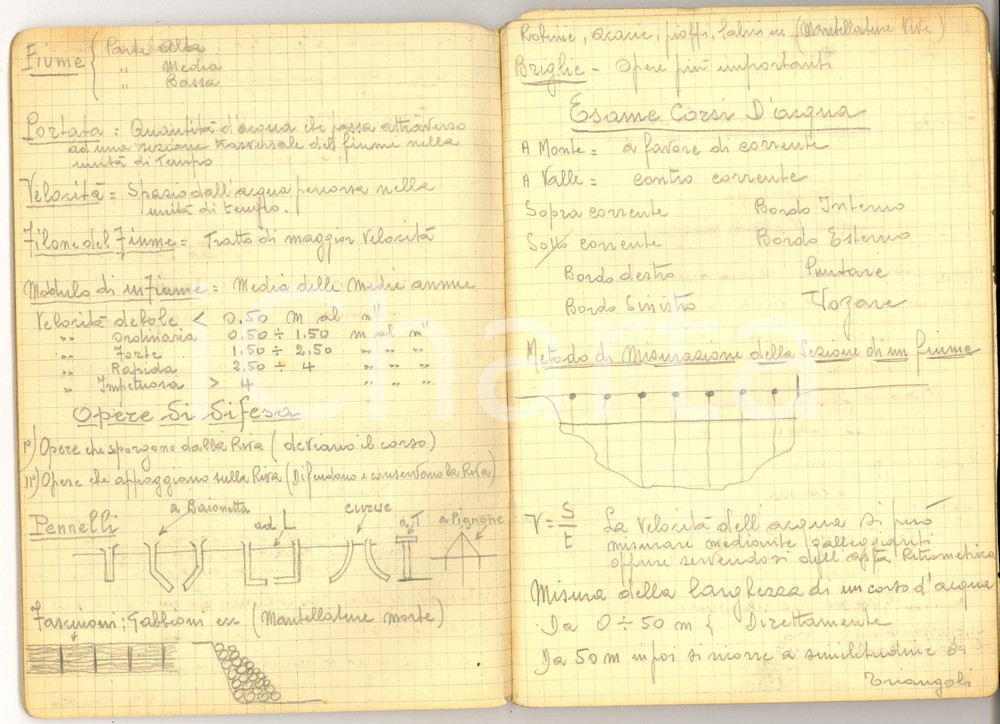 Fiume { Parte Alta
" Media
" Bassa
Portata = Quantità d'acqua che passa attraverso
ad una sezione trasversale del fiume nella
unità di tempo
Velocità = Spazio dall'acqua percorsa nella
unità di tempo.
Filone del Fiume = Tratto di maggior velocità
Modulo di un Fiume = Media delle medie annue
Velocità debole < 0.50 m al m"
" ordinaria 0.50 ÷ 1.50 m al m"
" Forte 1.50 ÷ 2.50 " " "
" Rapida 2.50 ÷ 4 " " "
" Impetuosa > 4 " " "
Opere di difesa
I°) Opere che sporgono dalla Riva (deviano il corso)
II°) Opere che appoggiano sulla Riva (Difendono e conservano la Riva)
Pennelli a Baionetta ad L curve a T a Pignone
Fascinoni; Gabbioni ecc (Mantellature morte)
Robinie, acacie, pioppi, salici ecc (Mantellature Vive)
Briglie - Opere più importanti
Esame Corsi D'acqua
A Monte = a favore di corrente
A Valle = contro corrente
Sopra corrente Bordo Interno
Sotto corrente Bordo Esterno
Bordo destro Puntare
Bordo Sinistro Vogare
Metodo di Misurazione della Sezione di un fiume
V = S/t La Velocità dell'acqua si può
misurare mediante galleggianti
oppure servendosi dell'asta Ritrometrica
Misura della larghezza di un corso d'acqua
Da 0 ÷ 50 m { Direttamente
Da 50 m in poi si ricorre a similitudine di
Triangoli
icharta